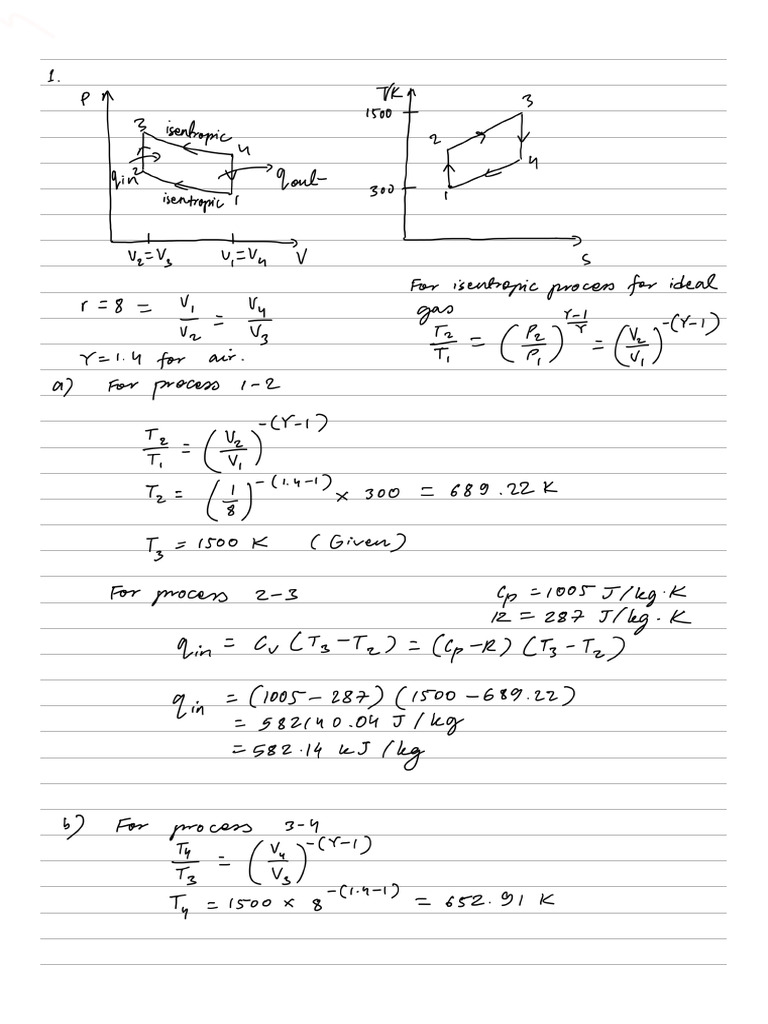 1.
P
3
isentropic
4
q_in
2
q_out
isentropic
1
V₂=V₃
V₁=V₄
V
T/K
1500
300
3
2
4
1
s
r = 8 = V₁/V₂ = V₄/V₃
γ = 1.4 for air.
For isentropic process for ideal
gas
T₂/T₁ = (P₂/P₁)^((γ-1)/γ) = (V₂/V₁)^(-(γ-1))
a) For process 1-2
T₂/T₁ = (V₂/V₁)^(-(γ-1))
T₂ = (1/8)^(-(1.4-1)) × 300 = 689.22 K
T₃ = 1500 K (Given)
For process 2-3
Cp = 1005 J/kg·K
R = 287 J/kg·K
q_in = Cv (T₃-T₂) = (Cp-R) (T₃-T₂)
q_in = (1005-287) (1500-689.22)
= 582140.04 J/kg
= 582.14 kJ/kg
b) For process 3-4
T₄/T₃ = (V₄/V₃)^(-(γ-1))
T₄ = 1500 × 8^(-(1.4-1)) = 652.91 K